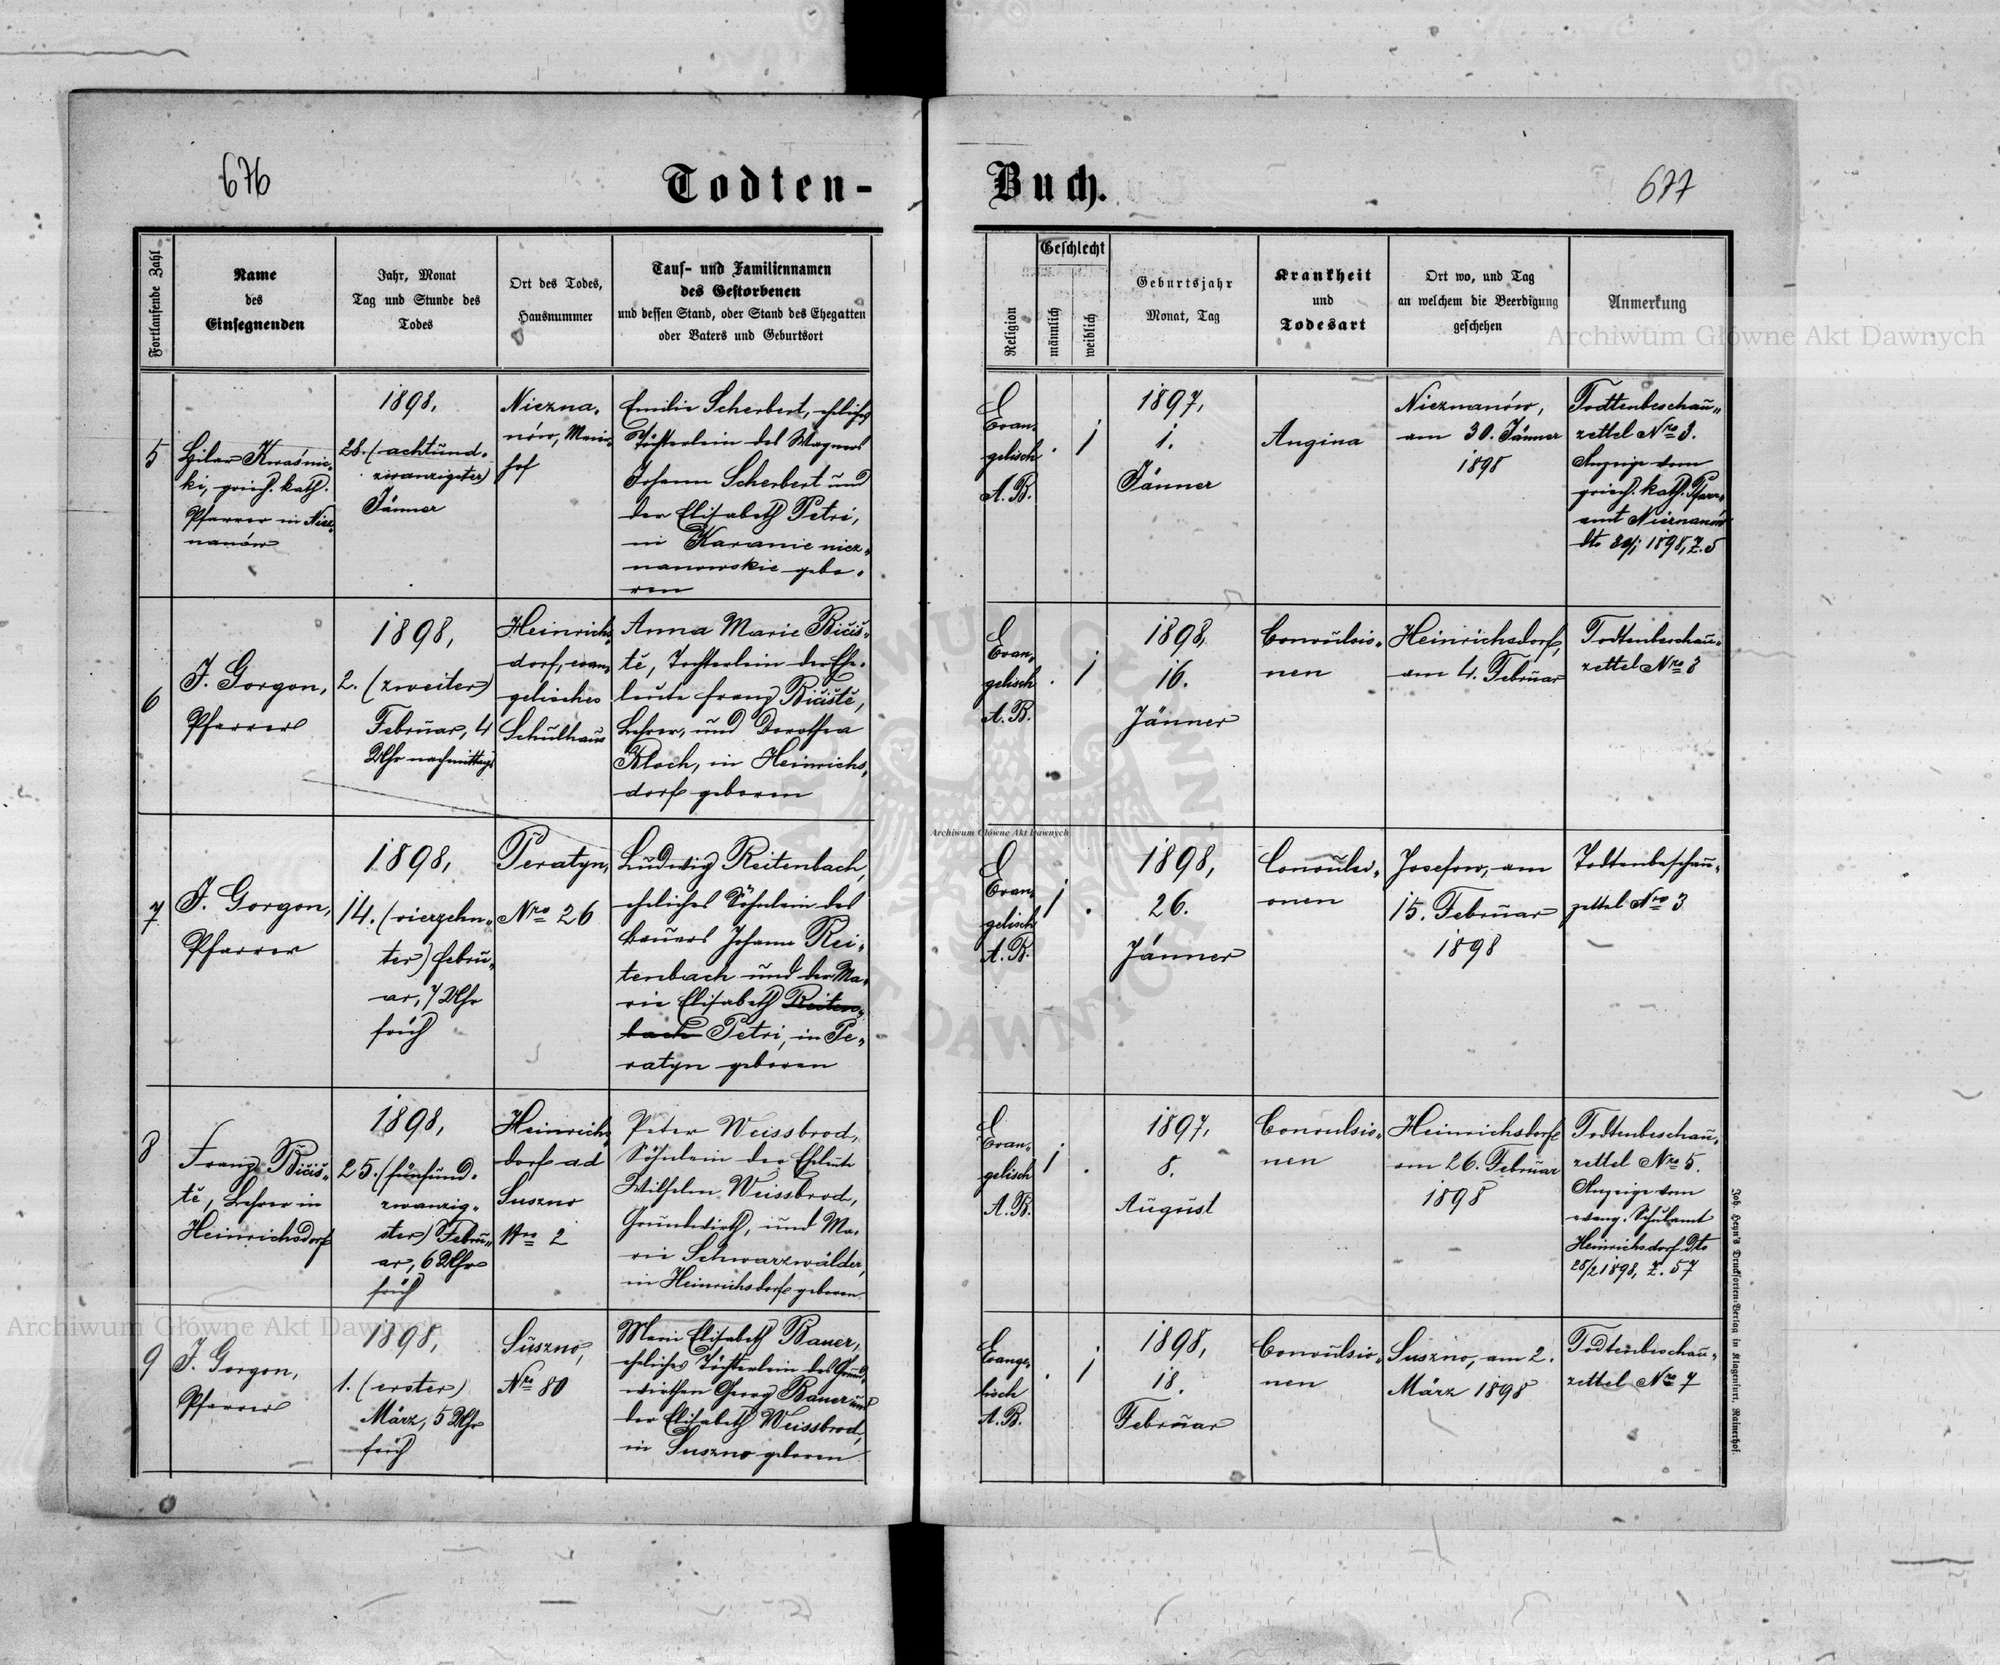 676
Todten-
Buch.
677
Fortlaufende Zahl
Name
des
Einsegnenden
Jahr, Monat
Tag und Stunde des
Todes
Ort des Todes,
Hausnummer
Tauf- und Familiennamen
des Gestorbenen
und dessen Stand, oder Stand des Ehegatten
oder Vaters und Geburtsort
Religion
Geschlecht
männlich
weiblich
Geburtsjahr
Monat, Tag
Krankheit
und
Todesart
Ort wo, und Tag
an welchem die Beerdigung
geschehen
Anmerkung
5
Hilar Kwaśnic-
ki, griech. kath.
Pfarrer in Niez-
nanów
1898,
28. (achtund-
zwanzigster)
Jänner
Niezna-
nów, Marien-
hof
Emilie Scherbert, eheliches
Töchterlein des Wagners
Johann Scherbert und
der Elisabeth Petri,
in Karanie niez-
nanowskie gebo-
ren
Evan-
gelisch
A. B.
. 1
1897,
1.
Jänner
Angina
Nieznanów,
am 30. Jänner
1898
Todtenbeschau-
zettel Nro 3.
Anzeige vom
griech. kath. Pfarr-
amt Nieznanów
dto 1898, Z. 5
6
J. Gorgon,
Pfarrer
1898,
2. (zweiter)
Februar, 4
Uhr nachmittags
Heinrichs-
dorf, evan-
gelisches
Schulhaus
Anna Marie Bičiš-
tě, Tochterlein der Ehe-
leute Franz Bičiště,
Lehrer, und Dorothea
Kloch, in Heinrichs-
dorf geboren
Evan-
gelisch
A. B.
. 1
1898,
16.
Jänner
Convulsio-
nen
Heinrichsdorf,
am 4. Februar
Todtenbeschau-
zettel Nro 3
7
J. Gorgon,
Pfarrer
1898,
14. (vierzehn-
ter) Febru-
ar, 7 Uhr
früh
Peratyn,
Nro 26
Ludwig Reitenbach,
eheliches Söhnlein des
Bauers Johann Rei-
tenbach und der Ma-
rie Elisabeth Reiten-
bach Petri, in Pe-
ratyn geboren
Evan-
gelisch
A. B.
1 .
1898,
26.
Jänner
Convulsi-
onen
Josefow, am
15. Februar
1898
Todtenbeschau-
zettel Nro 3
8
Franz Bičiš-
tě, Lehrer in
Heinrichsdorf
1898,
25. (fünfund-
zwanzig-
ster) Febru-
ar, 6 Uhr
früh
Heinrichs-
dorf ad
Suszno
Nro 2
Peter Weissbrod,
Söhnlein der Eheleute
Wilhelm Weissbrod,
Grundwirth, und Ma-
rie Schwarzwälder,
in Heinrichsdorf geboren
Evan-
gelisch
A. B.
1 .
1897,
8.
August
Convulsio-
nen
Heinrichsdorf
am 26. Februar
1898
Todtenbeschau-
zettel Nro 5.
Anzeige vom
evang. Schulamt
Heinrichsdorf dto
28/2 1898, Z. 57
9
J. Gorgon,
Pfarrer
1898,
1. (erster)
März, 5 Uhr
früh
Suszno,
Nro 80
Marie Elisabeth Bauer,
eheliches Töchterlein des Grund-
wirthen Georg Bauer und
der Elisabeth Weissbrod,
in Suszno geboren
Evange-
lisch
A. B.
. 1
1898,
18.
Februar
Convulsio-
nen
Suszno, am 2.
März 1898
Todtenbeschau-
zettel Nro 7
Joh. Heyn's Drucksorten-Verlag in Klagenfurt, Rainerhof.
Archiwum Główne Akt Dawnych
Archiwum Główne Akt Dawnych
Archiwum Główne Akt Dawnych